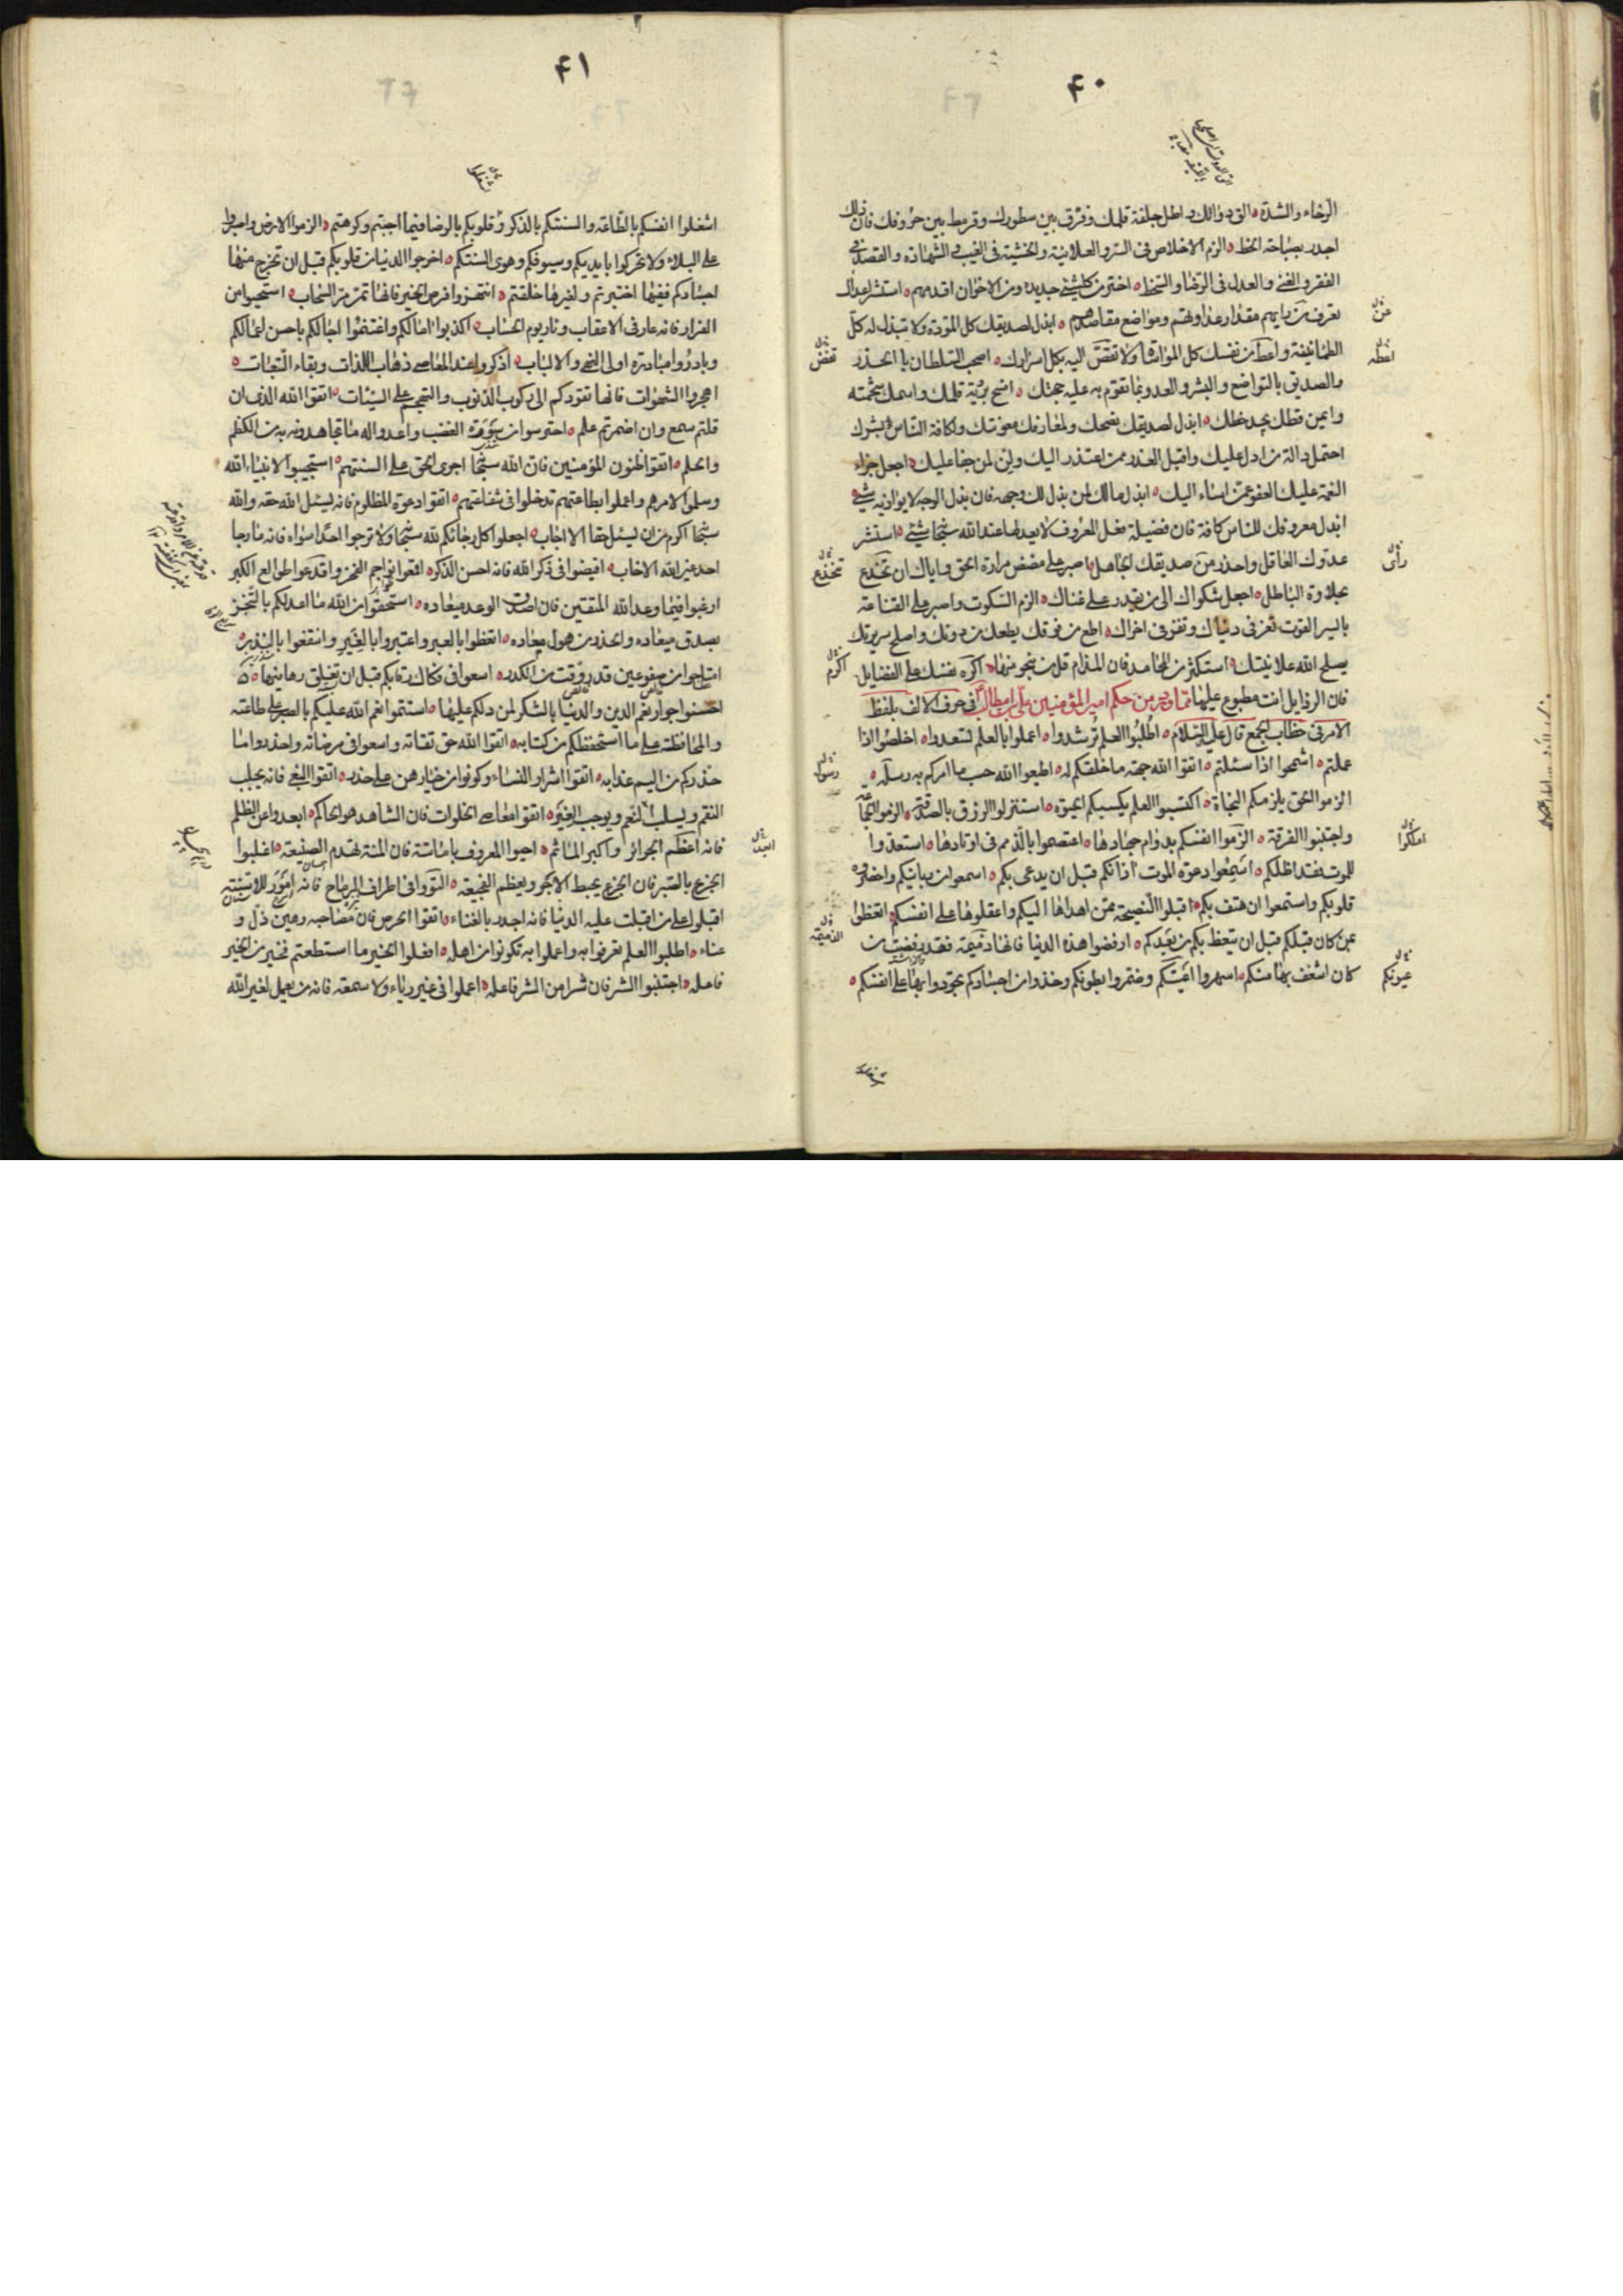 ۴۰
الرخاء والشدة الق دواتك واطل جلفة قلمك وفرق بين سطورك وقرمط بين حروفك فان ذلك
اجدر بصباحة الخط الزم الاخلاص فى السر والعلانية والخشية فى الغيب والشهادة والقصد فى
الفقر والغنى والعدل فى الرضا والسخط اختر من كل شئ جديده ومن الاخوان اقدمهم استشر اعداك
تعرف من رايهم مقدار عداوتهم ومواضع مقاصدهم ابذل لصديقك كل المودة ولا تبذل له كل
الطمانينة واعط من نفسك كل المواساة ولا تفض اليه بكل اسرارك اصحب السلطان بالحذر
والصديق بالتواضع والبشر والعدو بما تقوم به عليه حجتك اضح برية قلمك واسمك شحمته
وايمن قطك يجد خطك ابذل لصديقك نصحك ولمعارفك معونتك ولكافة الناس بشرك
احتمل دالة من ادل عليك واقبل العذر ممن اعتذر اليك ولن لمن جفا عليك اجعل جزاء
النعمة عليك العفو عمن اساء اليك ابذل مالك لمن بذل لك وجهه فان بذل الوجه لا يوازيه شئ
ابذل معروفك للناس كافة فان فضيلة فعل المعروف لا يعدلها عند الله سبحانه شئ استشر
عدوك العاقل واحذر من صديقك الجاهل اصبر على مضض مرارة الحق واياك ان تخدع
بحلاوة الباطل اجعل شكواك الى من يقدر على غناك الزم السكوت واصبر على القناعة
بايسر القوت تعز فى دنياك وتفز فى اخراك اطع من فوقك يطعك من دونك واصلح سريرتك
يصلح الله علانيتك استكثر من المحامد فان المذام قل من ينجو منها اكره نفسك على الفضايل
فان الرذايل انت مطبوع عليها مما ورد من حكم امير المؤمنين على بن ابيطالب فى حرف الالف بلفظ
الامر فى خطاب الجمع قال عليه السلام اطلبوا العلم ترشدوا اعملوا بالعلم تسعدوا اخلصوا اذا
عملتم اسمحوا اذا سئلتم اتقوا الله جهة ما خلقكم له اطيعوا الله حسب ما امركم به رسله
الزموا الحق يلزمكم النجاة اكتسبوا العلم يكسبكم الحيوة استنزلوا الرزق بالصدقة الزموا الجماعة
واجتنبوا الفرقة الزموا انفسكم بدوام جهادها اعتصموا بالذمم فى اوتادها استعدوا
للموت فقد اظلكم اسمعوا دعوة الموت اذانكم قبل ان يدعى بكم اسمعوا من ربانيكم واحضروه
قلوبكم واستمعوا ان هتف بكم اقبلوا النصيحة ممن اهداها اليكم واعقلوها على انفسكم اتعظوا
بمن كان قبلكم قبل ان يتعظ بكم من بعدكم ارفضوا هذه الدنيا فانها ذميمة فقد رفضت من
كان اشغف بها منكم اسهروا اعينكم وضمروا بطونكم وخذوا من اجسادكم تجودوا بها على انفسكم
عن
اعطه
تفض
رأى
تنخدع
اكرم
رسوله
املكوا
الذميمة
عيونكم
اشغلوا
۴۱
اشغلوا انفسكم بالطاعة والسنتكم بالذكر وقلوبكم بالرضا فيما احببتم وكرهتم الزموا الارض واصبروا
على البلاء ولا تحركوا بايديكم وسيوفكم وهوى السنتكم اخرجوا الدنيا من قلوبكم قبل ان تخرج منها
اجسادكم ففيها اختبرتم ولغيرها خلقتم انتهزوا فرص الخير فانها تمر مر السحاب استحيوا من
الفرار فانه عار فى الاعقاب ونار يوم الحساب اكذبوا امالكم واغتنموا اجالكم باحسن اعمالكم
وبادروا مبادرة اولى النهى والالباب اذكروا عند المعاصى ذهاب اللذات وبقاء التبعات
اهجروا الشهوات فانها تقودكم الى ركوب الذنوب والتهجم على السيئات اتقوا الله الذى ان
قلتم سمع وان اضمرتم علم احترسوا من سورة الغضب واعدوا له ما تجاهدونه به من الكظم
والحلم اتقوا ظنون المؤمنين فان الله سبحانه اجرى الحق على السنتهم استجيبوا الانبياء الله
وسلموا لامرهم واعملوا بطاعتهم تدخلوا فى شفاعتهم اتقوا دعوة المظلوم فانه يسئل الله حقه والله
سبحانه اكرم من ان يسئل حقا الا اجاب اجعلوا كل رجائكم لله سبحانه ولا ترجوا احدا سواه فانه ما رجا
احد غير الله الا خاب افيضوا فى ذكر الله فانه احسن الذكر اقمعوا نواجم الفخر واقدعوا طوالع الكبر
ارغبوا فيما وعد الله المتقين فان اصدق الوعد ميعاده استحقوا من الله ما اعد لكم بالتنجز
بصدق ميعاده والحذر من هول معاده اتعظوا بالعبر واعتبروا بالغير وانتفعوا بالنذر
امتاحوا من صفو عين قد روقت من الكدر اسعوا فى فكاك رقابكم قبل ان تغلق رهاينها
احسنوا جوار نعم الدين والدنيا بالشكر لمن دلكم عليها استتموا نعم الله عليكم بالصبر على طاعته
والمحافظة على ما استحفظكم من كتابه اتقوا الله حق تقاته واسعوا فى مرضاته واحذروا ما
حذركم من اليم عذابه اتقوا اشرار النساء وكونوا من خيارهن على حذر اتقوا البغى فانه يجلب
النقم ويسلب النعم ويوجب الغير اتقوا معاصى الخلوات فان الشاهد هو الحاكم ابعدوا عن الظلم
فانه اعظم الجرائر واكبر المآثم احيوا المعروف باماتته فان المنة تهدم الصنيعة اغلبوا
الجزع بالصبر فان الجزع يحبط الاجر ويعظم الفجيعة التووا فى اطراف الرماح فانه امور للاسنة
اقبلوا على من اقبلت عليه الدنيا فانه اجدر بالغناء اتقوا الحرص فان مصاحبه رهين ذل و
عناء اطلبوا العلم تعرفوا به واعملوا به تكونوا من اهله افعلوا الخير ما استطعتم فخير من الخير
فاعله اجتنبوا الشر فان شرا من الشر فاعله اعملوا فى غير رياء ولا سمعة فانه من يعمل لغير الله
ابعدوا